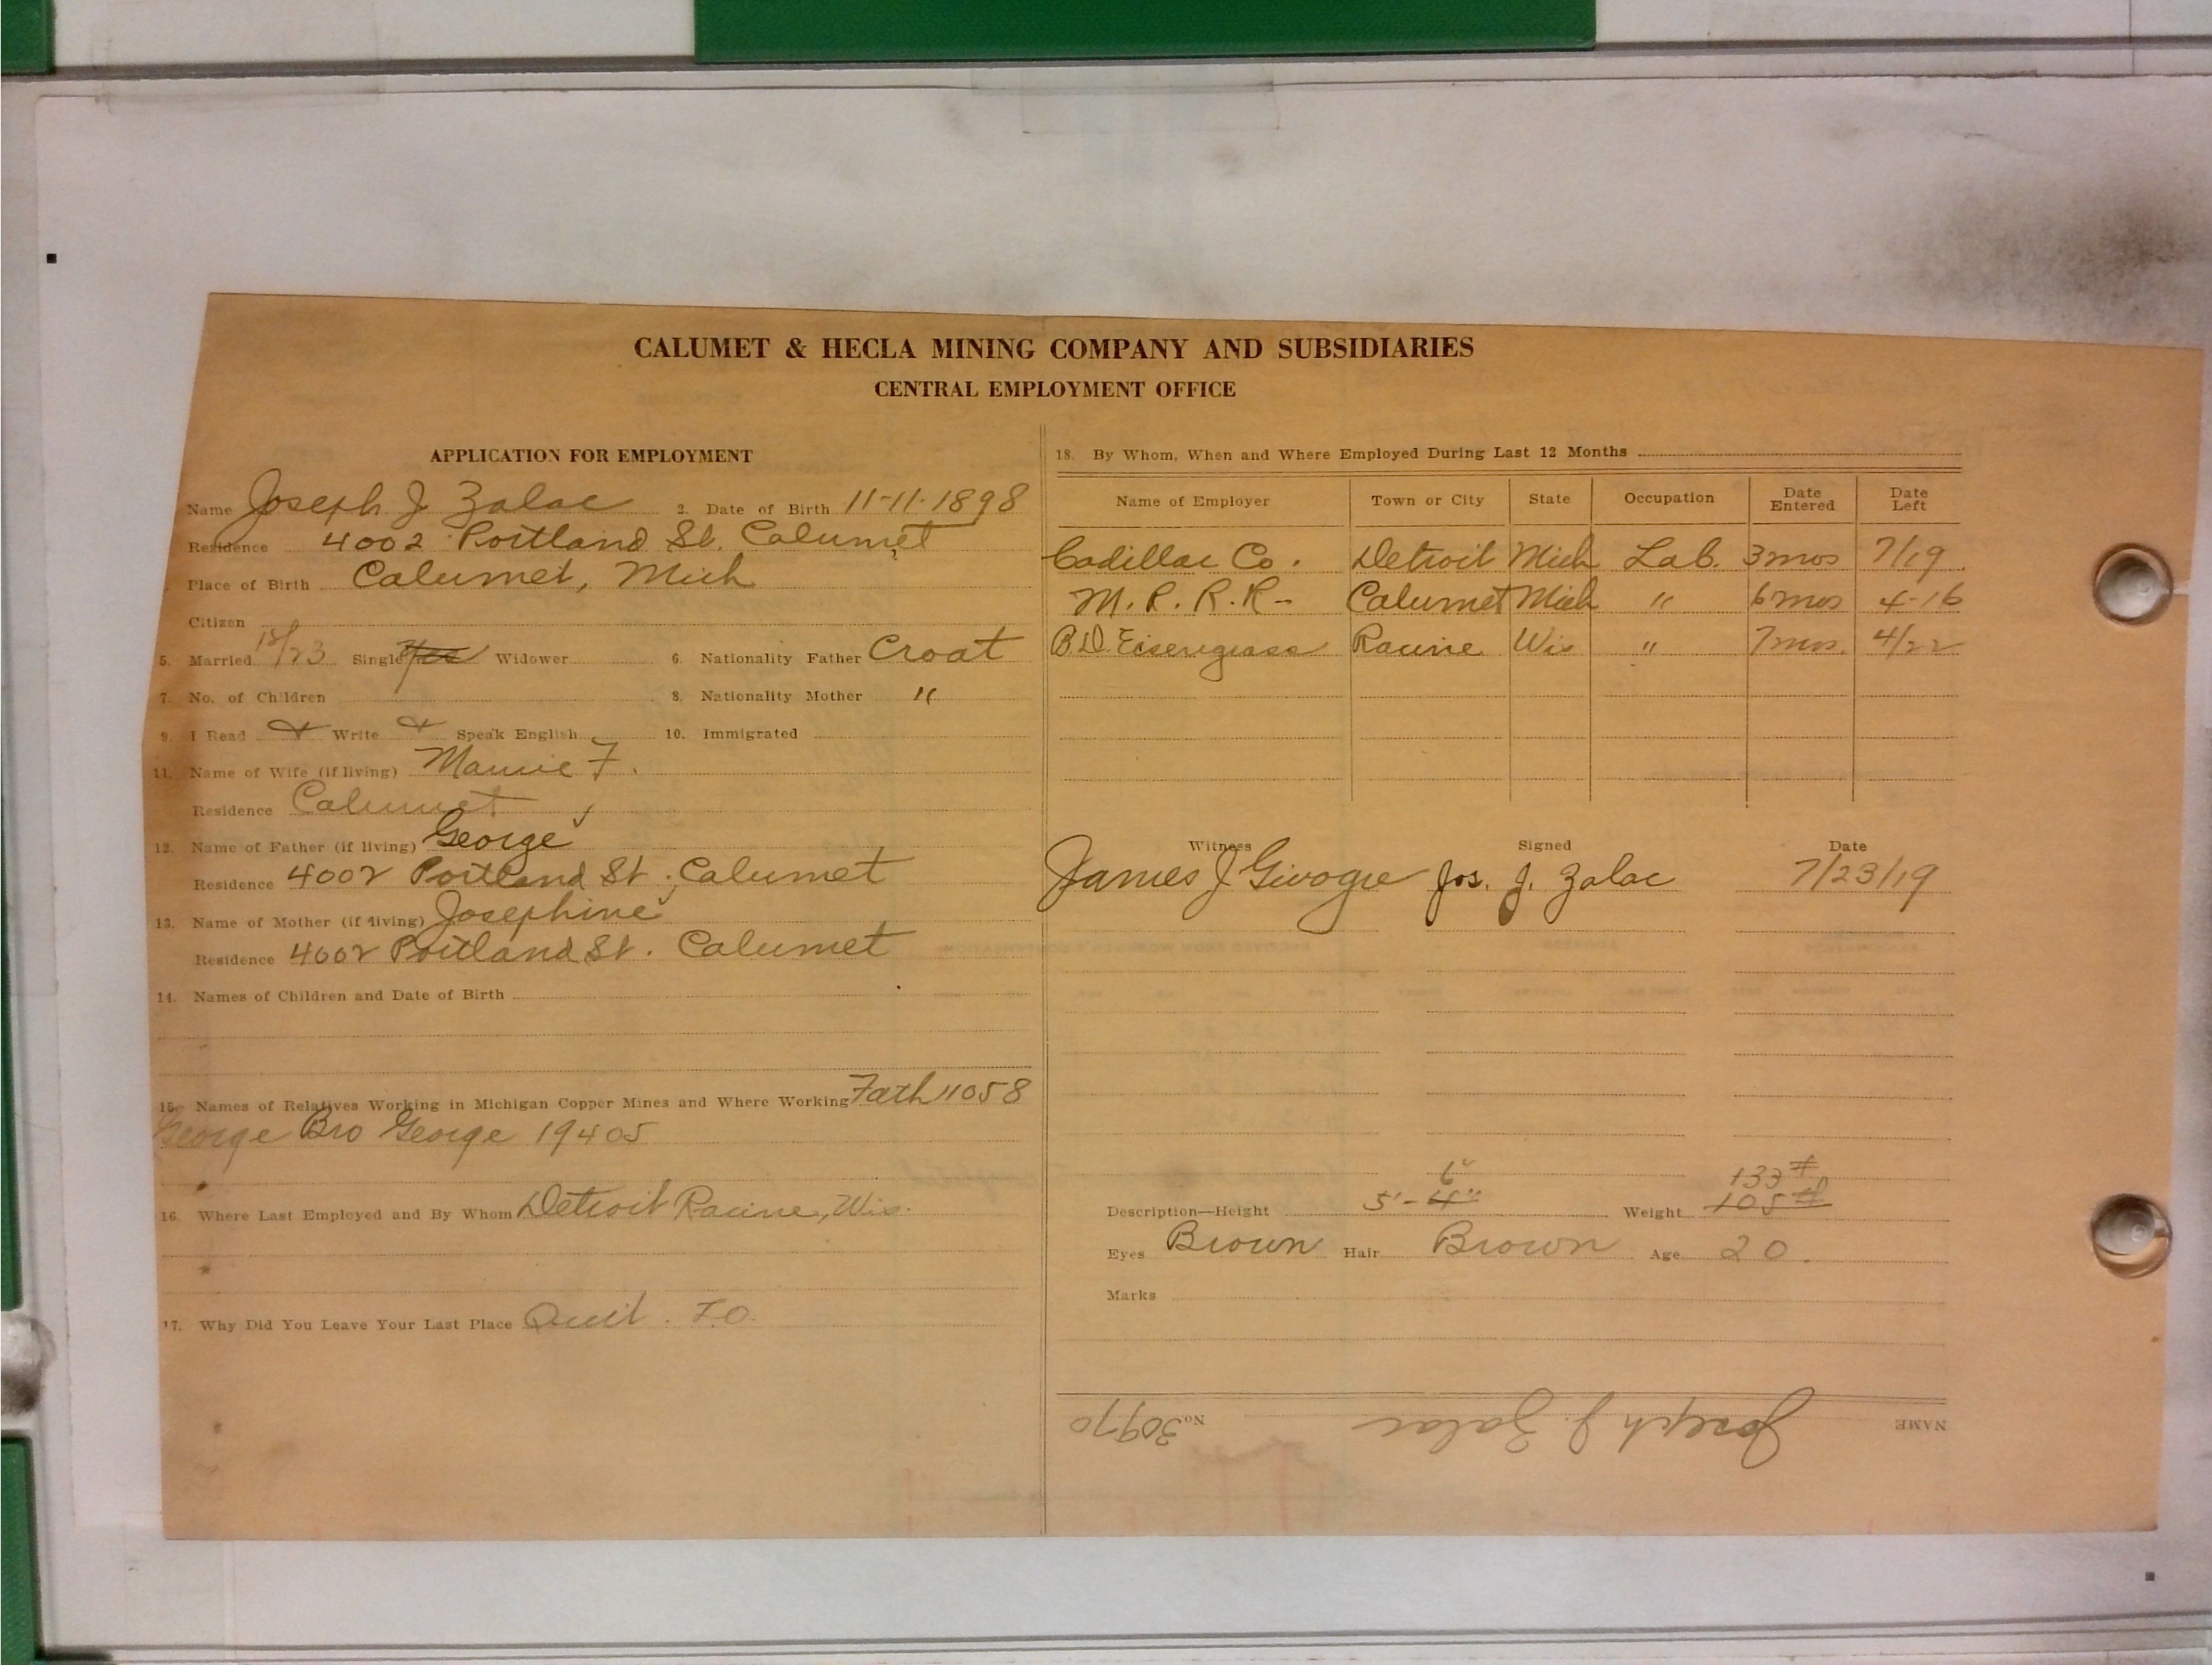 CALUMET & HECLA MINING COMPANY AND SUBSIDIARIES
CENTRAL EMPLOYMENT OFFICE
APPLICATION FOR EMPLOYMENT
Name Joseph J Zalac 2. Date of Birth 11-11-1898
Residence 4002 Portland St. Calumet
Place of Birth Calumet, Mich
Citizen
5. Married /23 Single Widower 6. Nationality Father Croat
7. No. of Children 8. Nationality Mother "
9. I Read Write Speak English 10. Immigrated
11. Name of Wife (if living) Mamie F.
Residence Calumet
12. Name of Father (if living) George
Residence 4002 Portland St. Calumet
13. Name of Mother (if living) Josephine
Residence 4002 Portland St. Calumet
14. Names of Children and Date of Birth
15. Names of Relatives Working in Michigan Copper Mines and Where Working Fath 11058
George Bro George 19405
16. Where Last Employed and By Whom Detroit Racine, Wis.
17. Why Did You Leave Your Last Place Quit. F.O.
18. By Whom, When and Where Employed During Last 12 Months
Name of Employer Town or City State Occupation Date Entered Date Left
Cadillac Co. Detroit Mich Lab. 3 mos 7/19
M. R. R. Calumet Mich " 6 mos 4-16
B.D. Racine Wis " 7 mos. 4/22
Witness Signed Date
James J Jos. J. Zalac 7/23/19
6" 133#
Description—Height 5'-4" Weight 105#
Eyes Brown Hair Brown Age 20.
Marks
NAME Joseph J. Zalac No. 30970